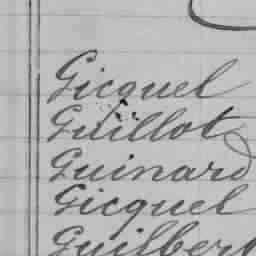 Gicquel
Guillot
Guinard
Gicquel
Guilbert